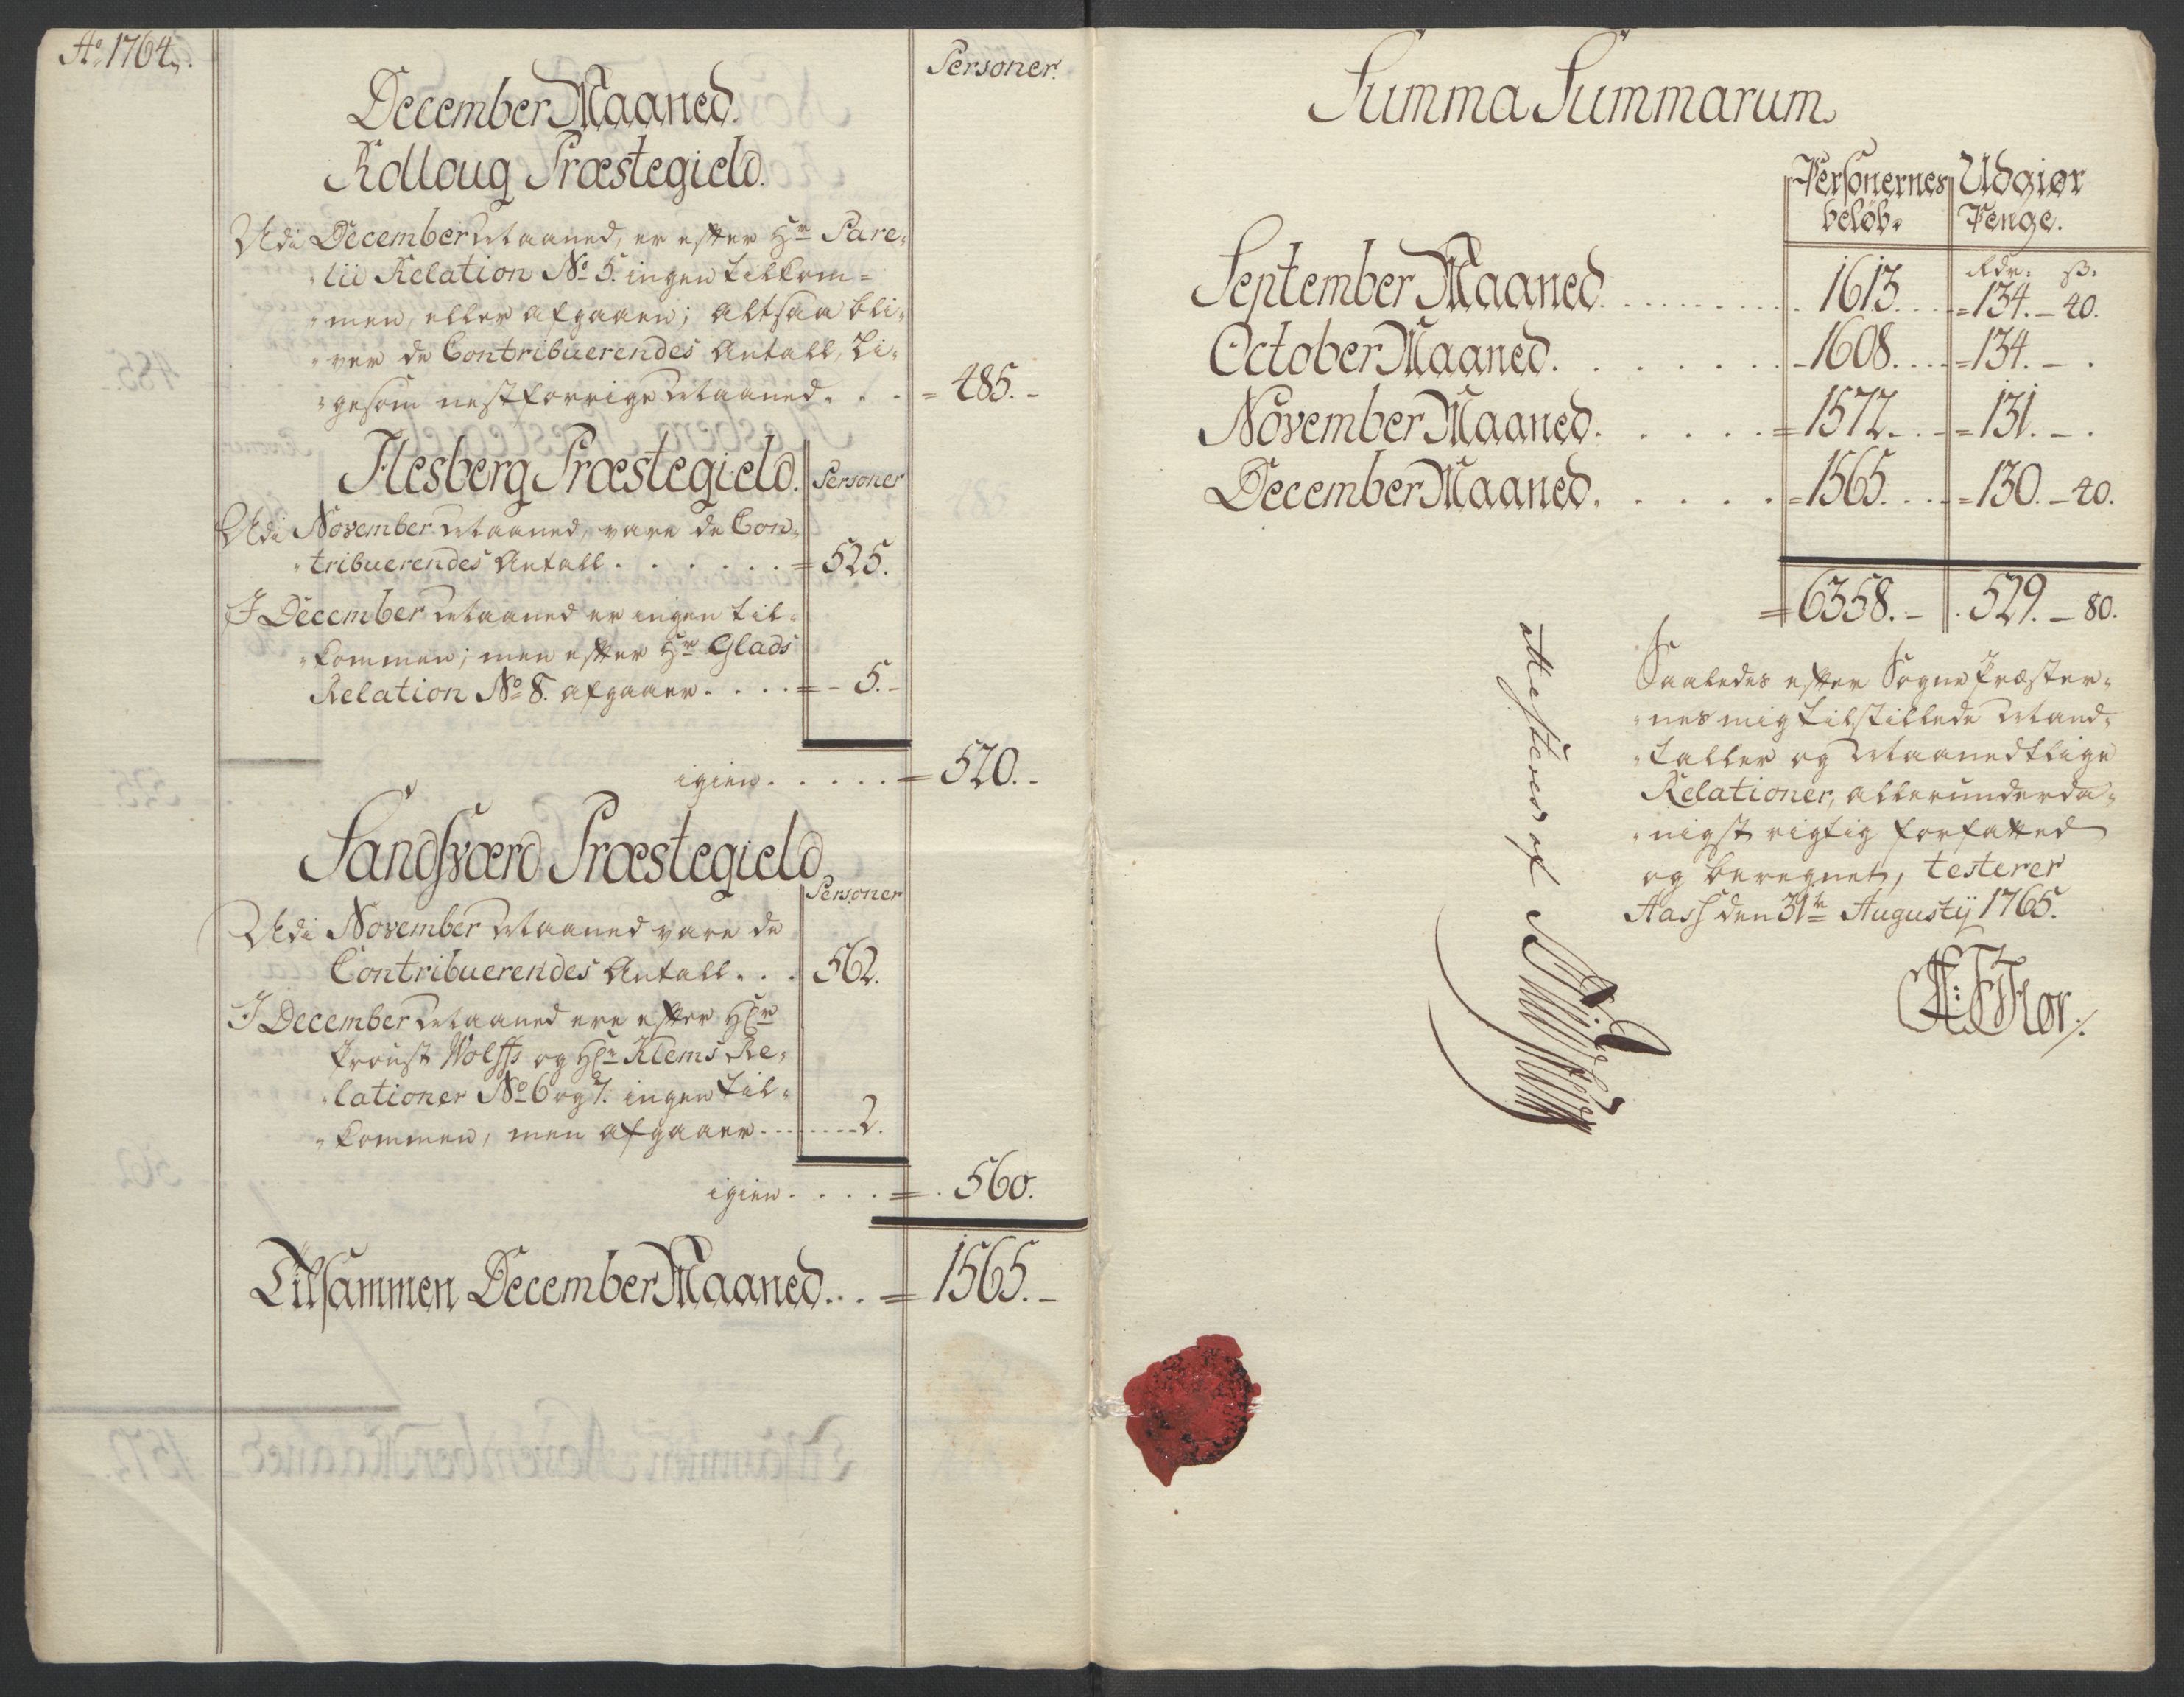 Ao 1764.
Personer.
December Maaned.
Rolloug Præstegield.
Udi December Maaned, er efter Hr Pare-
lii Relation No 5. ingen tilkom-
men, eller afgaaen; altsaa bli-
ver de Contribuerendes Antall, li-
gesom nestforrige Maaned. . . = 485.-
Flesberg Præstegield. Personer
Udi November Maaned, vare de Con-
tribuerendes Antall. . . . . . = 525.
I December Maaned er ingen til-
kommen; men efter Hr Glads
Relation No 8. afgaaer. . . . = - 5.-
igien. . . . . = 520.-
Sandsværd Præstegield.
Personer
Udi November Maaned vare de
Contribuerendes Antall. . . 562.
I December Maaned ere efter Hr
Proust Wolffs og Hr Klems Re-
lationer No 6 og 7. ingen til-
kommen, men afgaaer. - - - - 2.
igien. . . . = . 560.
Tilsammen December Maaned. . . = 1565.-
Summa Summarum.
Personernes beløb. Udgiør Penge.
Rdr. ß.
September Maaned. . . . . 1613. . . = 134. - 40.
October Maaned. . . . . - 1608. . . = 134. - .
November Maaned. . . . . = 1572. . . = 131. - .
December Maaned. . . . . = 1565. . . = 130. - 40.
= 6358. - . 529. - 80.
Saaledes efter Sogne Præster-
nes mig tilstillede Mand-
taller og Maanedtlige
Relationer, allerunderda-
nigst rigtig forfatted
og beregnet, testerer
Aass den 31te Augusty 1765.
Attesteres af